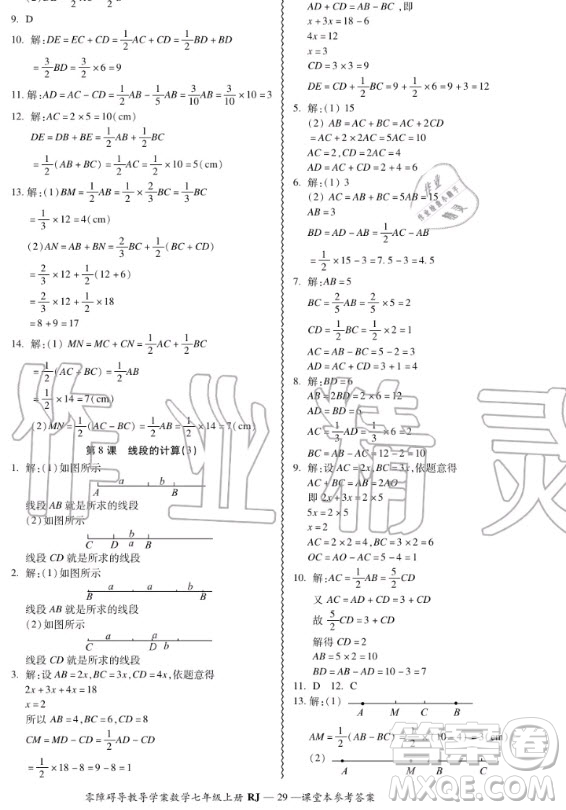 9. D
10. 解:DE=EC+CD=1/2AC+CD=1/2BD+BD
=3/2BD=3/2×6=9
11. 解:AD=AC-CD=1/2AB-1/5AB=3/10AB=3/10×10=3
12. 解:AC=2×5=10(cm)
DE=DB+BE=1/2AB+1/2BC
=1/2(AB+BC)=1/2AC=1/2×10=5(cm)
13. 解:(1)BM=1/2AB=1/2×2/3BC=1/3BC
=1/3×12=4(cm)
(2)AN=AB+BN=2/3BC+1/2(BC+CD)
=2/3×12+1/2(12+6)
=2/3×12+1/2×18
=8+9=17
14. 解:(1) MN=MC+CN=1/2AC+1/2BC
=1/2(AC+BC)=1/2AB
=1/2×14=7(cm)
(2)MN=1/2(AC-BC)=1/2AB=1/2×14=7(cm)
第8课 线段的计算(3)
1. 解:(1)如图所示
a b
A B
线段AB就是所求的线段
(2)如图所示
b
C D a B
线段CD就是所求的线段
2. 解:(1)如图所示
a a b
A B
线段AB就是所求的线段
(2)如图所示
a
C b D
线段CD就是所求的线段
3. 解:设AB=2x,BC=3x,CD=4x,依题意得
2x+3x+4x=18
x=2
所以AB=4,BC=6,CD=8
CM=MD-CD=1/2AD-CD
AD+CD=AB-BC,即
x+3x=18-6
4x=12
x=3
CD=3×3=9
DE=CD+1/2BC=9+1/2×6=9+3=12
5. 解:(1) 15
(2) AB=AC+BC=AC+2CD
=AC+2×2AC=5AC=10
AC=2,CD=4
AD=AC+CD=2+4=6
6. 解:(1) 3
(2) AC=AB+BC=5AB=15
AB=3
BD=AD-AB=1/2AC-AB
=1/2×15-3=7.5-3=4.5
7. 解:AB=5
BC=2/5AB=2/5×5=2
CD=1/2BC=1/2×2=1
AC=AB-BC=5-2=3
AD=AC+CD=3+1=4
8. 解:BD=6
AB=2BD=2×6=12
AD=BD=6
AC=1/3AD=1/3×6=2
BC=AB-AC=12-2=10
9. 解:设AC=2x,BC=3x,依题意得
AC+BC=AB=2AO
即2x+3x=2×5
5x=2×5
x=2
AC=2×2=4,BC=3×2=6
OC=AO-AC=5-4=1
10. 解:AC=1/2AB=5/2CD
又AC=AD+CD=3+CD
故5/2CD=3+CD
解得CD=2
AB=5×2=10
BD=AB-AD=10-3=7
11. D 12. C
13. 解:(1)
A M C B
AM=1/2(AB-BC)=1/2×(10-4)=3(cm)
(2)
A B M C
零障碍导教导学案数学七年级上册 RJ —29—课堂本参考答案
作业精灵